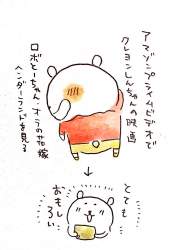 アマゾンプライムビデオで
クレヨンしんちゃんの映画
ロボとーちゃん・オラの花嫁
ヘンダーランドを見る
とても
おもしろい